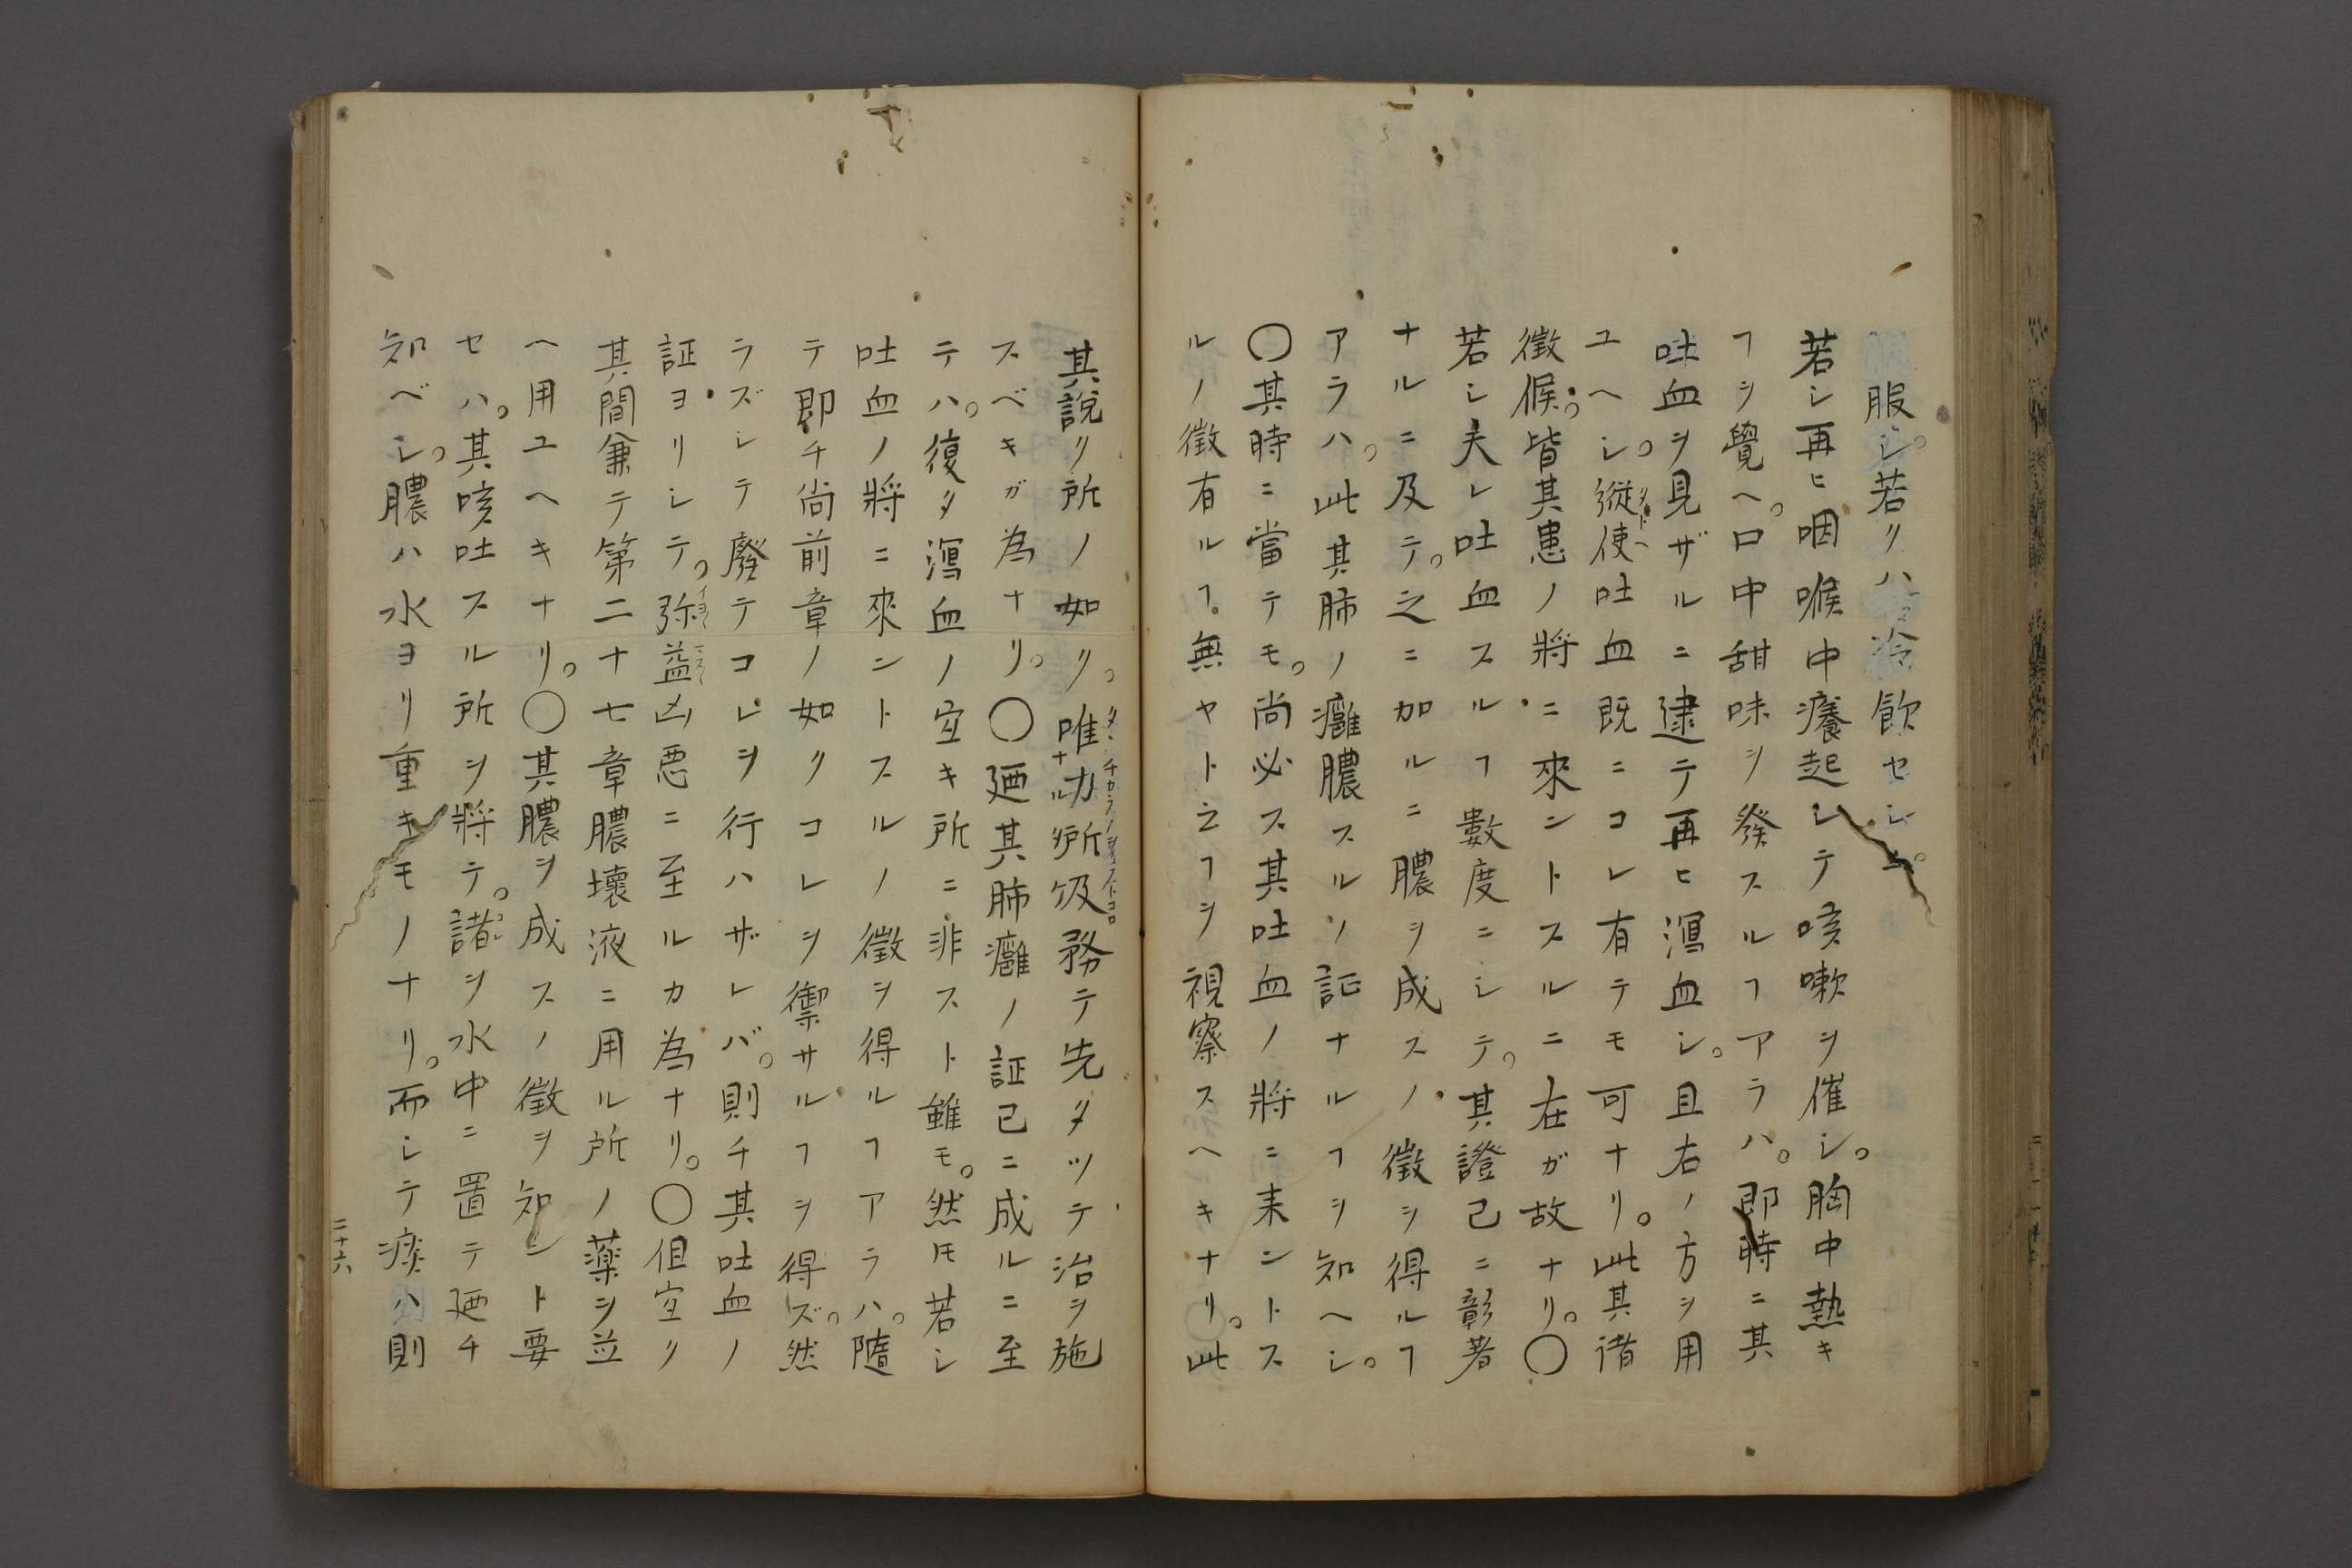 服シ。若クハ冷飲セシム。
若シ再ヒ咽喉中癢起シテ咳嗽ヲ催シ。胸中熱キ
ヿヲ覺ヘ。口中甜味ヲ發スルヿアラハ。即時ニ其
吐血ヲ見ザルニ逮テ再ヒ瀉血シ。且右ノ方ヲ用
ユヘシ。縱使吐血既ニコレ有テモ可ナリ。此其諸
徴候。皆其患ノ將ニ來ントスルニ在ガ故ナリ。〇
若シ夫レ吐血スルヿ數度ニシテ。其證已ニ彰著
ナルニ及テ。之ニ加ルニ膿ヲ成スノ徴ヲ得ルヿ
アラハ。此其肺ノ癰膿スルノ証ナルヿヲ知ヘシ。
〇其時ニ當テモ。尚必ス其吐血ノ將ニ来ントス
ルノ徴有ルヿ。無ヤト之ヿヲ視察スヘキナリ。此
其說ク所ノ如ク。唯力所伋務テ先タツテ治ヲ施
スベキガ為ナリ。〇廼其肺癰ノ証已ニ成ルニ至
テハ。復タ瀉血ノ宜キ所ニ非スト雖モ。然モ若シ
吐血ノ將ニ來ントスルノ徴ヲ得ルヿアラハ。隨
テ即チ尚前章ノ如クコレヲ禦サルヿヲ得ズ。然
ラズシテ廢テコレヲ行ハザレバ。則チ其吐血ノ
証ヨリシテ。弥益凶惡ニ至ルカ為ナリ。〇但宜ク
其間兼テ第二十七章膿壞液ニ用ル所ノ藥ヲ並
ヘ用ユヘキナリ。〇其膿ヲ成スノ徴ヲ知ント要
セハ。其咳吐スル所ヲ將テ。諸ヲ水中ニ置テ廼チ
知ベシ。膿ハ水ヨリ重キモノナリ。而シテ痰ハ則
二十六